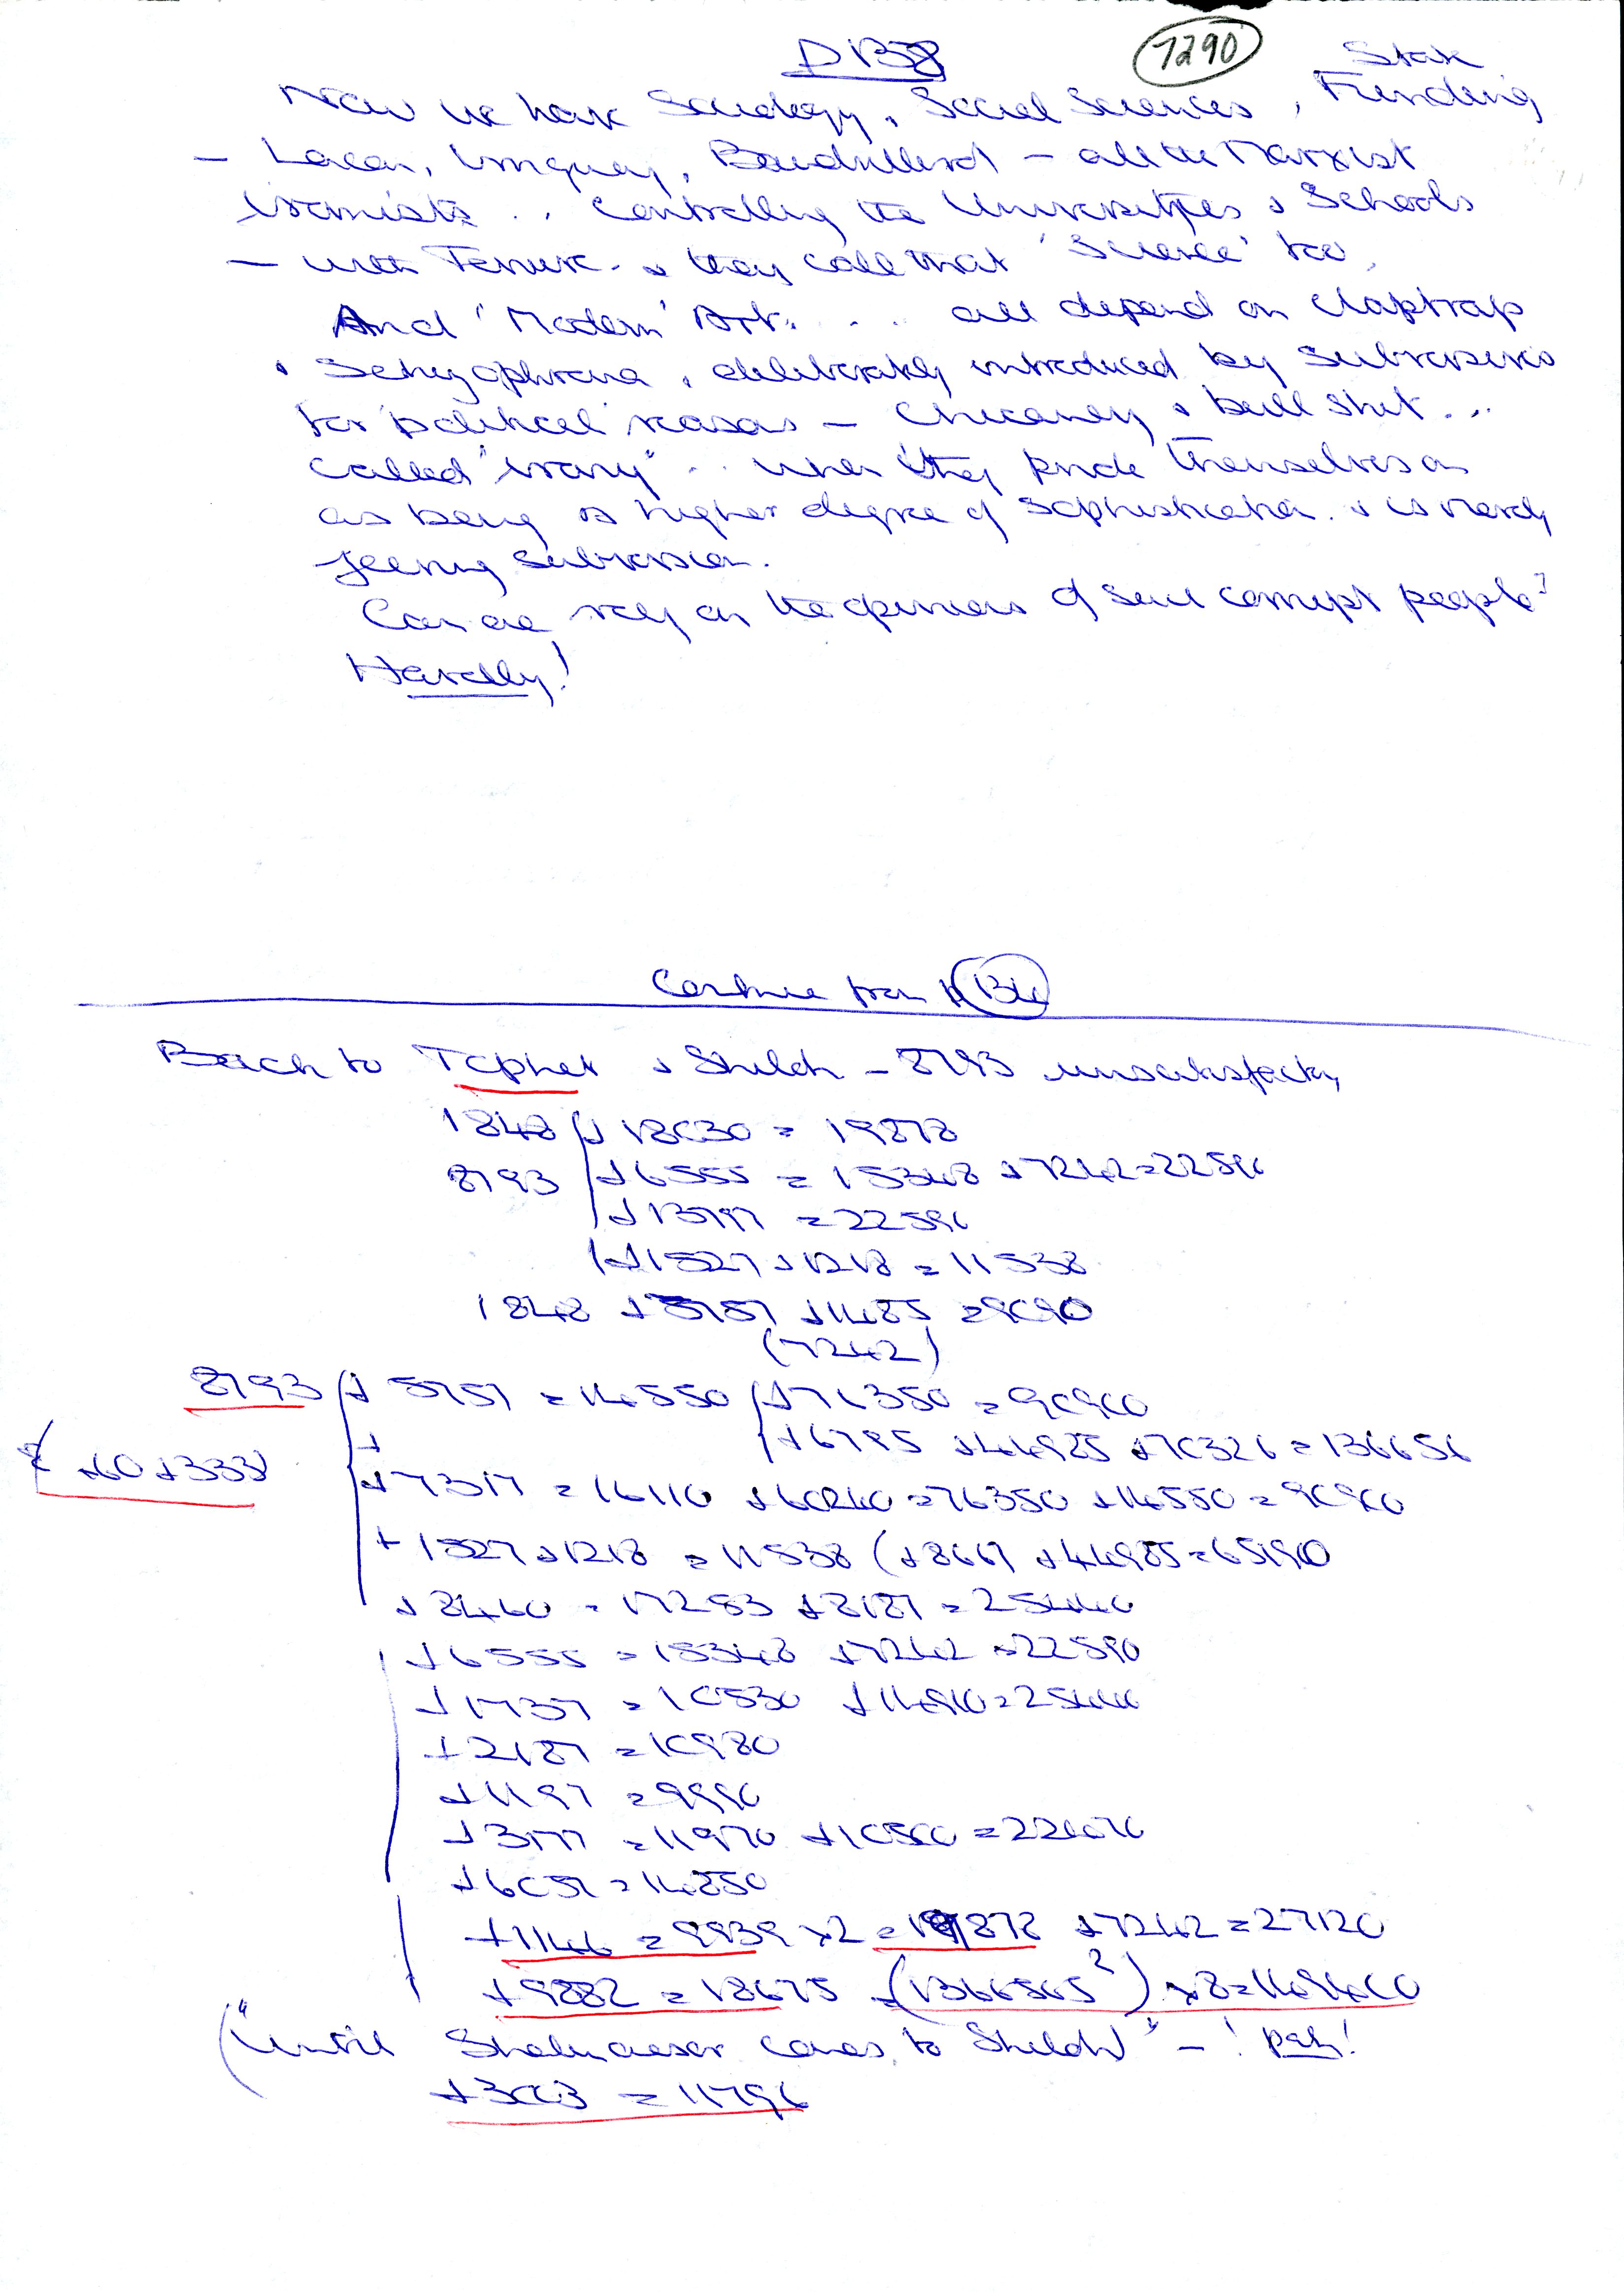 DB8
7290
State
Now we have Sociology, Social Sciences, Funding
– Lacan, Irriguay, Baudrillard – all the Marxist
ironists .. Controlling the Universities & Schools
– with Tenure. & they call that 'Science' too.
And 'Modern' Art. . . . all depend on claptrap
& Schizophrenia, deliberately introduced by subversives
for political reasons – Chicanery & bull shit ...
called "irony" .. when they pride themselves on
as being a higher degree of Sophistication. & is merely
jeering subversion.
Can one rely on the opinions of such corrupt people?
Hardly!
Continue from
Back to Tophet & Shiloh – 8793 unsatisfactory
1848 + 18030 = 19878
8793 + 6555 = 15348 + 7242 = 22590
+ 13797 = 22590
+ 1527 + 1218 = 11538
1848 + 5757 + 1485 = 9090
(7242)
8793 + 5757 = 14550 + 76350 = 90900
+ + 6795 + 44985 + 70326 = 136656
+60 + 333
+ 7317 = 16110 + 60240 = 76350 + 14550 = 90900
+ 1527 + 1218 = 11538 (+ 8667 + 44985 = 65190
+ 8460 = 17253 + 8187 = 25440
+ 6555 = 15348 + 7242 = 22590
+ 1737 = 10530 + 14910 = 25440
+ 2187 = 10980
+ 1197 = 9990
+ 3177 = 11970 + 10500 = 22470
+ 6057 = 14850
+ 1146 = 9939 x 2 = 19878 + 7242 = 27120
+ 9882 = 18675 = (1366565²) x 8 = 149400
("Until Shalmaneser comes to Shiloh" – ! pah!
+ 3003 = 11796